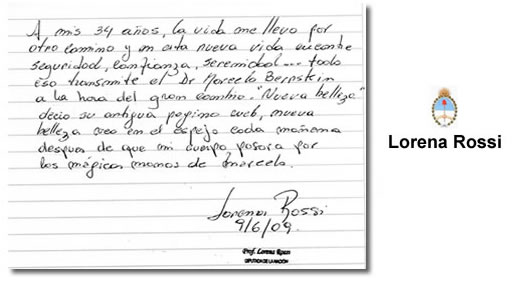 A mis 34 años, la vida me llevo por
otro camino y en esta nueva vida encontre
seguridad, confianza, serenidad... todo
eso transmite el Dr Marcelo Bernstein
a la hora del gran cambio. "Nueva belleza"
decia su antigua pagina web, nueva
belleza veo en el espejo cada mañana
despues de que mi cuerpo pasara por
las mágicas manos de Marcelo.
Lorena Rossi
9/6/09.
Prof. Lorena Rossi
DIPUTADA DE LA NACIÓN
Lorena Rossi